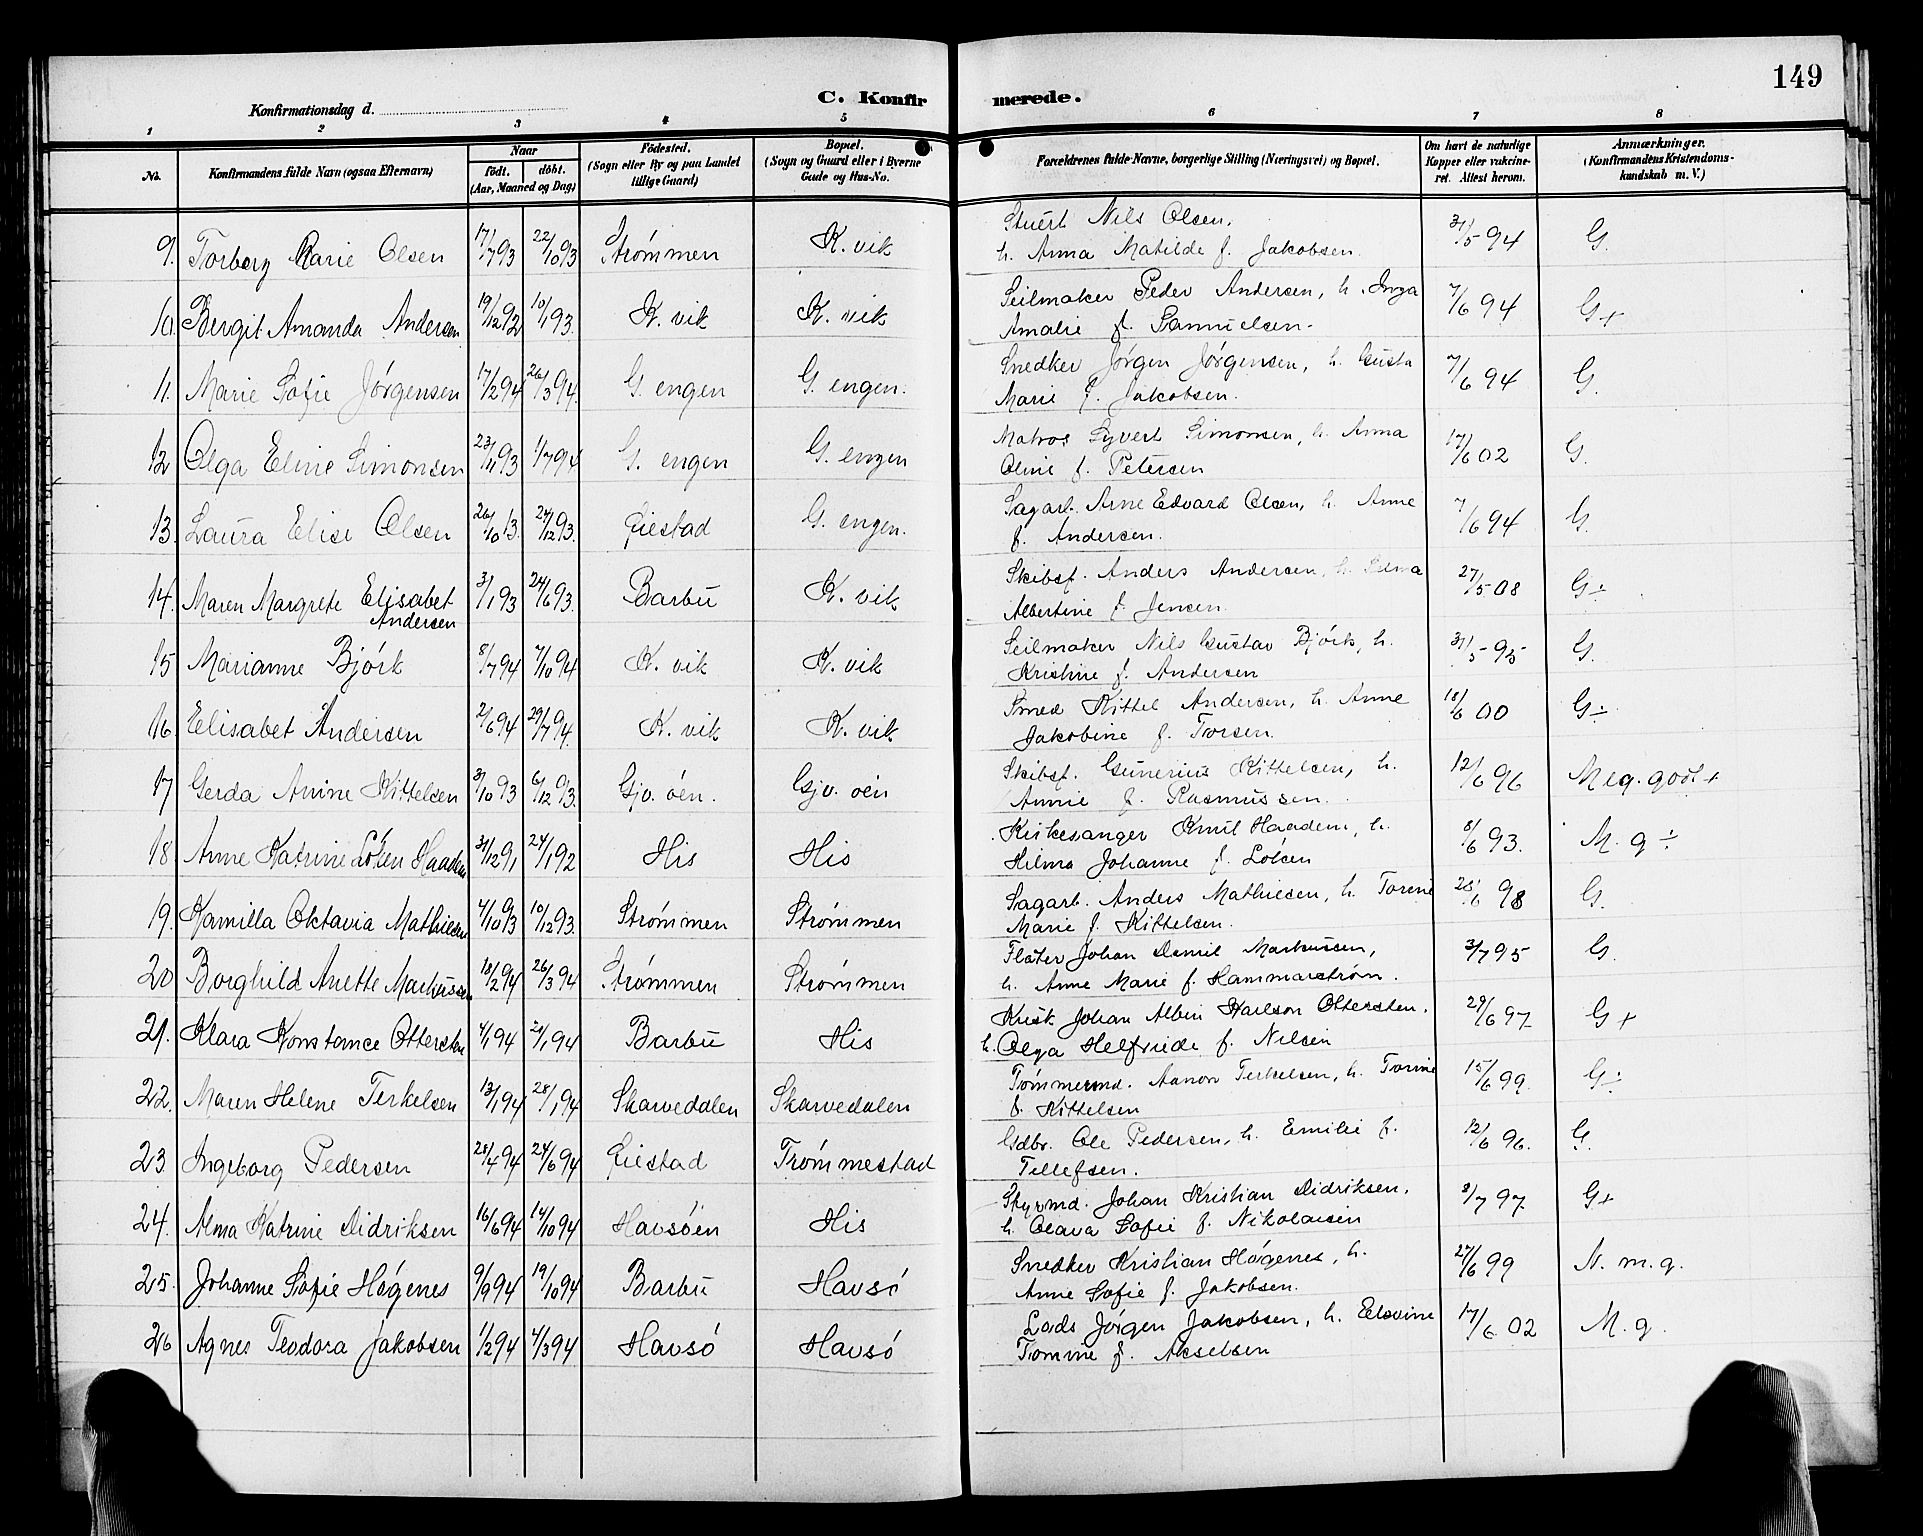 149
C. Konfirmerede.
Konfirmationsdag d.
1 2 3 4 5 6 7 8
No. Konfirmandens fulde Navn (ogsaa Efternavn) Naar født. døbt. (Aar, Maaned og Dag) Fødested. (Sogn eller By og paa Landet tillige Gaard) Bopæl. (Sogn og Gaard eller i Byerne Gade og Hus-No. Forældrenes fulde Navne, borgerlige Stilling (Næringsvei) og Bopæl. Om havt de naturlige Kopper eller vakcineret. Attest herom. Anmærkninger. (Konfirmandens Kristendomskundskab m. V.)
9. Torborg Marie Olsen 17/7 93 22/10 93 Strømmen K. vik Stuert Nils Olsen, 31/5 94 G.
h. Anna Matilde f. Jakobsen.
10. Bergit Amanda Andersen 19/12 92 10/1 93. K. vik K. vik Seilmaker Peder Andersen, h. Inga 7/6 94 G+
Amalie f. Samuelsen.
11. Marie Sofie Jørgensen 17/2 94 26/3 94. G. engen G. engen. Snedker Jørgen Jørgensen, h. Gusta 7/6 94 G.
Marie f. Jakobsen.
12 Olga Eline Simonsen 23/11 93 1/7 94 G. engen G. engen Matros Syvert Simonsen, h. Anna 17/6 02 G.
Oline f. Petersen
13. Laura Elise Olsen 26/10 93. 27/12 93. Eiestad G. engen. Sagarb. Arne Edvard Olsen, h. Anne 7/6 94 G.
f. Andersen.
14. Maren Margrete Elisabet 3/1 93 24/6 93. Barbu K. vik Skibsf. Anders Andersen, h. 27/5 08 G÷
Andersen Albertine f. Jensen
15 Marianne Bjørk 8/7 94 7/10 94 K. vik K. vik Seilmaker Nils Gustav Bjørk, h. 31/5 95 G.
Kristine f. Andersen
16. Elisabet Andersen 2/6 94 29/7 94. K. vik K. vik Smed Kittel Andersen, h. Anne 18/6 00 G÷
Jakobine f. Torsen.
17 Gerda Anine Kittelsen 3/10 93 6/12 93. Gjv. øen. Gjv. øen Skibsf. Gunerius Kittelsen, h. 12/6 96 Meg. godt+
Annie f. Rasmussen.
18. Anne Katrine Løken Haadem 31/12 91 24/1 92 His His Kirkesanger Knut Haadem, h. 8/6 93. M. g÷
Hilma Johanne f. Løken
19. Kamilla Oktavia Mathiesen 4/10 93 10/12 93. Strømmen Strømmen Sagarb. Anders Mathiesen, h. Torine 98 G.
Marie f. Kittelsen.
20 Borghild Anette Markussen 18/2 94 26/3 94 Strømmen Strømmen Fløter Johan Daniel Markussen, 3/7 95 G.
h. Anne Marie f. Hammarstrøm.
21. Klara Konstance Ottersten 4/1 94 21/1 94 Barbu His Kusk Johan Albin Karlson Ottersten, 29/6 97 G+
h. Olga Helfriede f. Nilsen
22. Maren Helene Terkelsen 13/1 94 28/1 94 Skarvedalen Skarvedalen Tømmermd. Aanon Terkelsen, h. Torine 15/6 99. G÷
f. Kittelsen
23. Ingeborg Pedersen 28/4 94 24/6 94 Eiestad Trømmestad Gdbr. Ole Pedersen, h. Emilie f. 12/6 96. G.
Tellefsen.
24. Alma Katrine Didriksen 16/6 94 14/10 94 Havsøen His Styrmd. Johan Kristian Didriksen, 8/7 97. G+
h. Olava Sofie f. Nikolaisen
25. Johanne Sofie Høgenes 9/9 94 19/10 94 Barbu Havsø Snedker Kristian Høgenes, h. 27/6 99 N. m. g.
Anne Sofie f. Jakobsen.
26 Agnes Teodora Jakobsen 1/2 94 4/3 94 Havsø Havsø Lods Jørgen Jakobsen, h. Elevine 17/6 02 M. g.
Tomine f. Akselsen